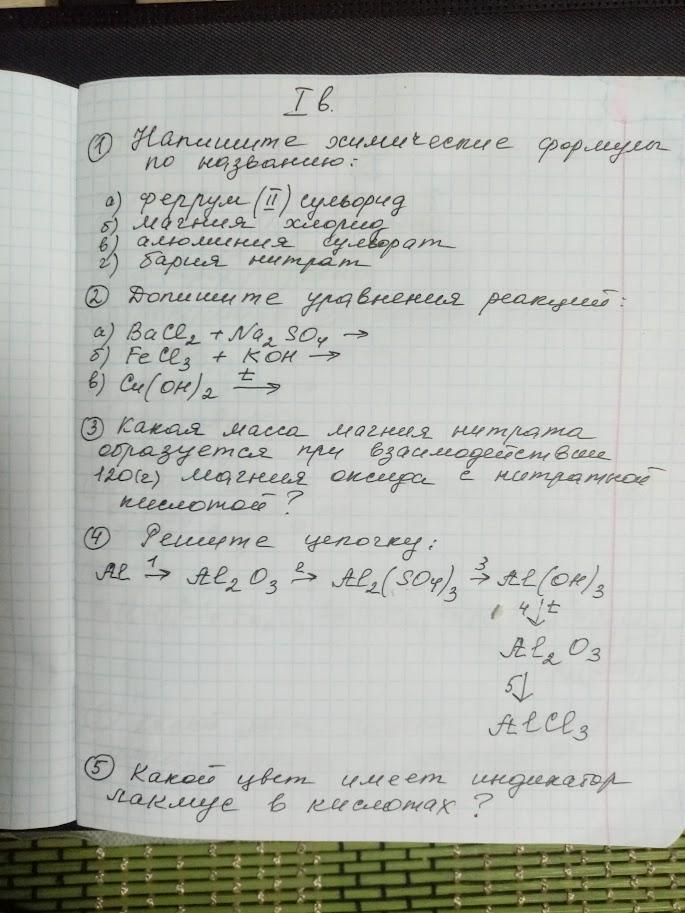 I в.
① Напишите химические формулы
по названию:
а) феррум (II) сульфид
б) магния хлорид
в) алюминия сульфат
г) бария нитрат
② Допишите уравнения реакций:
а) BaCl₂ + Na₂SO₄ →
б) FeCl₃ + KOH →
в) Cu(OH)₂ t→
③ Какая масса магния нитрата
образуется при взаимодействии
120(г) магния оксида с нитратной
кислотой?
④ Решите цепочку:
Al 1→ Al₂O₃ 2→ Al₂(SO₄)₃ 3→ Al(OH)₃
4↓t
Al₂O₃
5↓
AlCl₃
⑤ Какой цвет имеет индикатор
лакмус в кислотах?